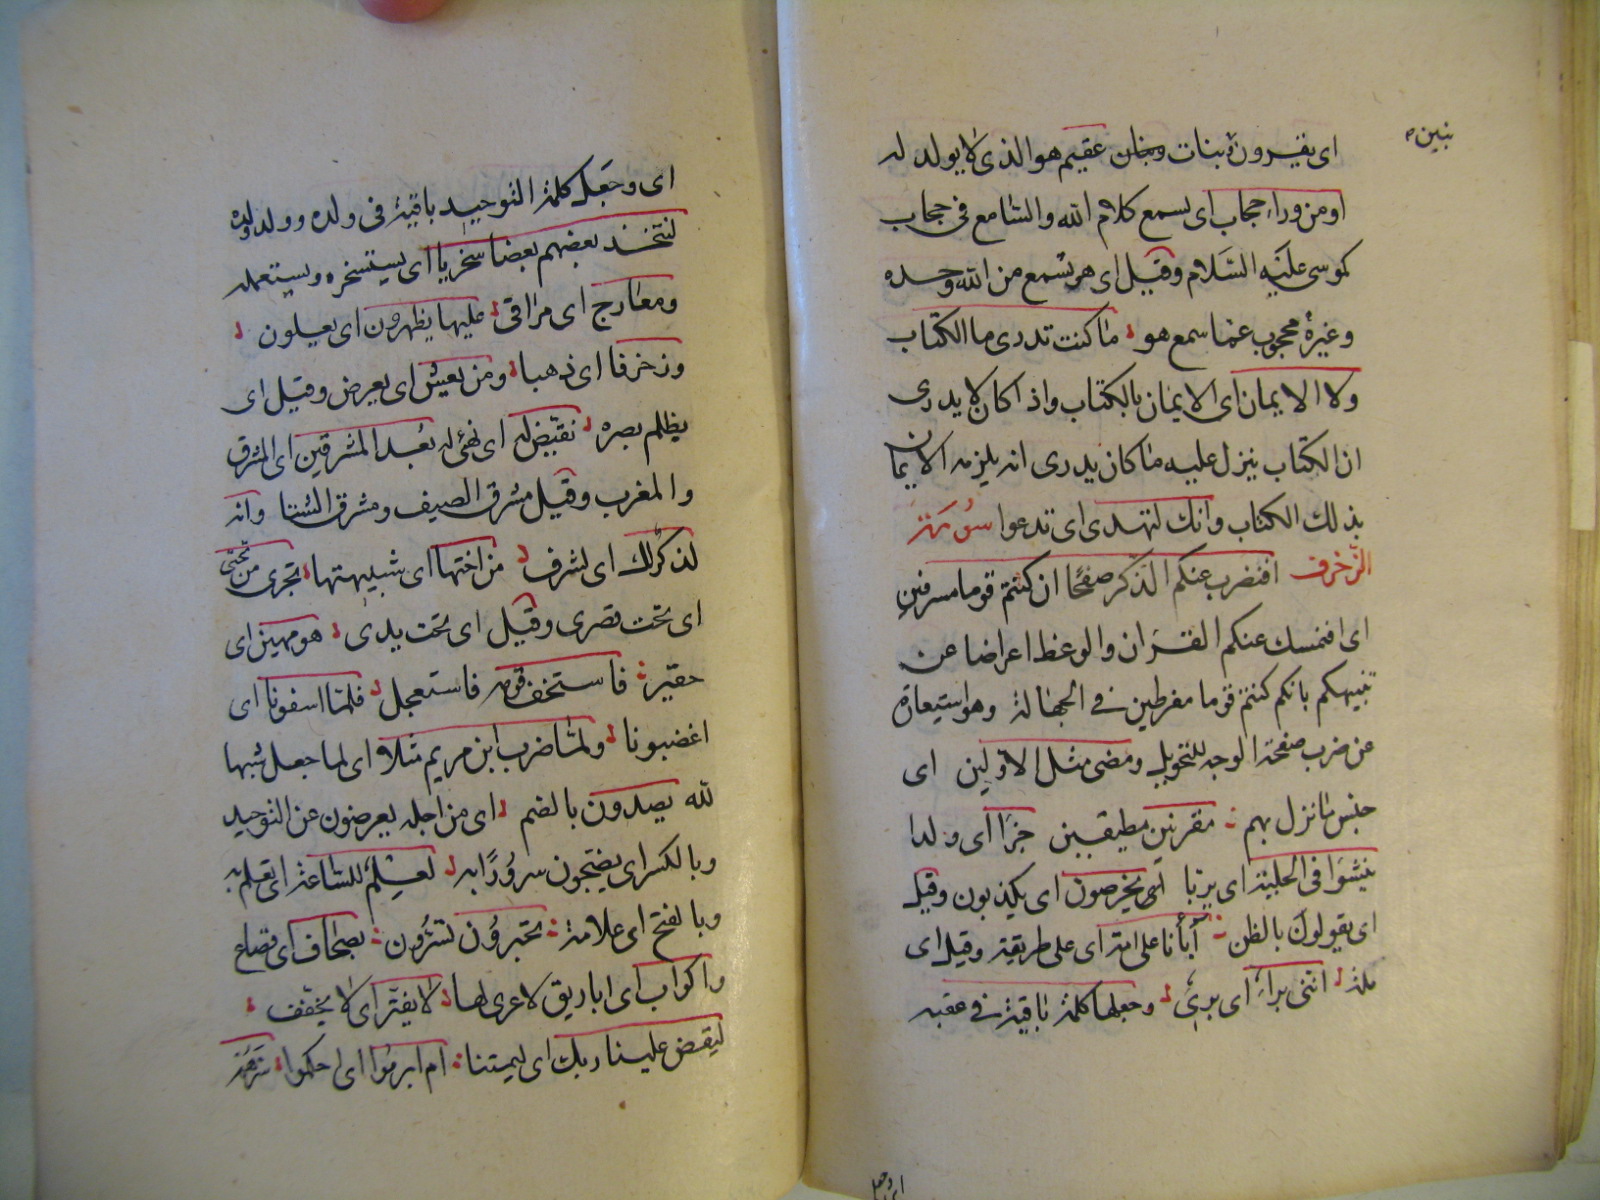 بنين
اى يقرون بنات وبنان عقيم هو الذى لا يولد له
او من وراء حجاب اى يسمع كلام الله والسامع فى حجاب
كموسى عليه السلام وقيل اى هو يسمع من الله وحده
وغيره محجوب عما سمع هو ما كنت تدرى ما الكتاب
ولا الايمان اى الايمان بالكتاب واذا كان لا يدرى
ان الكتاب ينزل عليه ما كان يدرى انه يلزمه الايمان
بذلك الكتاب وانك لتهدى اى تدعوا سورة
الزخرف افنضرب عنكم الذكر صفحا ان كنتم قوما مسرفين
اى افنمسك عنكم القران والوعظ اعراضا عن
تنبيهكم بانكم كنتم قوما مفرطين فى الجهالة وهو استعارة
من ضرب صفحة الوجه للتحويل ومضى مثل الاولين اى
جنس ما نزل بهم مقرنين مطيقين جزأ اى ولدا
ينشؤا فى الحلية اى يربا يخرصون اى يكذبون وقيل
اى يقولون بالظن آبأنا على امة اى على طريقة وقيل اى
ملة اننى براء اى برئ وجعلها كلمة باقية فى عقبه
اى وجعل
اى وجعل كلمة التوحيد باقية فى ولده وولد ولده
ليتخذ بعضهم بعضا سخريا اى يستسخره ويستعمله
ومعارج اى مراقى عليها يظهرون اى يعلون
وزخرفا اى ذهبا ومن يعش اى يعرض وقيل اى
يظلم بصره نقيض له اى نهئ له بعد المشرقين اى المشرق
والمغرب وقيل مشرق الصيف ومشرق الشتا وانه
لذكر لك اى لشرف من اختها اى شبيهتها تجرى من تحتى
اى تحت قصرى وقيل اى تحت يدى هو مهين اى
حقير فاستخف قومه فاستعجل فلما اسفونا اى
اغضبونا ولما ضرب ابن مريم مثلا اى لما جعل شبها
لله يصدون بالضم اى من اجله يعرضون عن التوحيد
وبالكسر اى يضجون سرورا به لعلم للساعة اى تعلم به
وبالفتح اى علامة تحبرون تسرون بصحاف اى قصاع
واكواب اى اباريق لا عرى لها لا يفتر اى لا يخفف
ليقض علينا ربك اى ليمتنا ام ابرموا اى احكموا